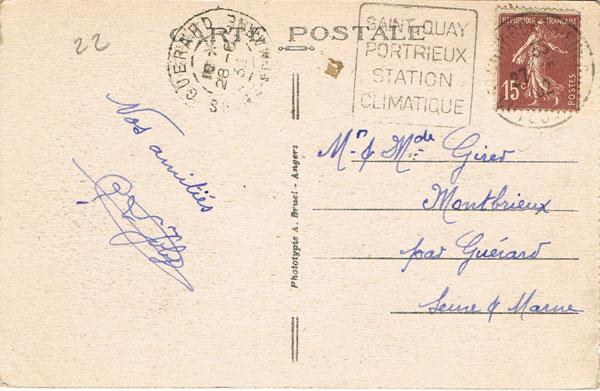 22
CARTE POSTALE
GUERARD
18
28-8
SAINT-QUAY
PORTRIEUX
STATION
CLIMATIQUE
REPUBLIQUE FRANÇAISE
15c
POSTES
Nos amitiés
Phototypie A. Bruel - Angers
Mr & Mde Girer
Montbrieux
par Guérard
Seine & Marne